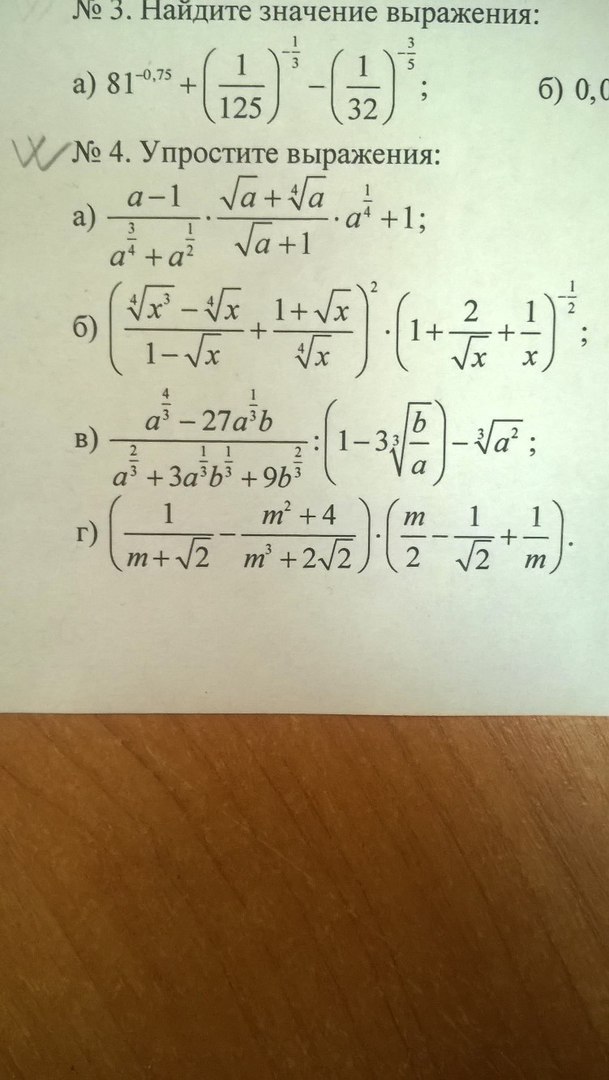 № 3. Найдите значение выражения:
а) 81^{-0,75} + (1/125)^{-1/3} − (1/32)^{-3/5}; б) 0,0
№ 4. Упростите выражения:
а) (a−1)/(a^{3/4} + a^{1/2}) · (√a + ∜a)/(√a + 1) · a^{1/4} + 1;
б) ((∜x³ − ∜x)/(1−√x) + (1+√x)/∜x)² · (1 + 2/√x + 1/x)^{-1/2};
в) (a^{4/3} − 27a^{1/3}b)/(a^{2/3} + 3a^{1/3}b^{1/3} + 9b^{2/3}) : (1 − 3∛(b/a)) − ∛a²;
г) (1/(m+√2) − (m²+4)/(m³+2√2)) · (m/2 − 1/√2 + 1/m).